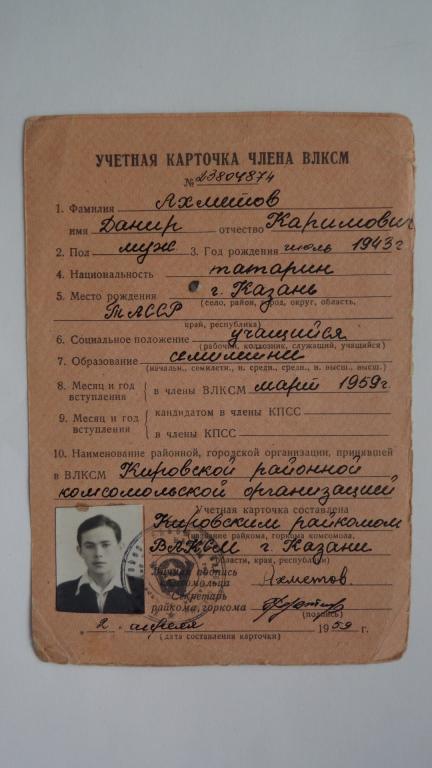 УЧЕТНАЯ КАРТОЧКА ЧЛЕНА ВЛКСМ
№ 23804874
1. Фамилия Ахметов
имя Данир отчество Каримович
2. Пол муж 3. Год рождения июль 1943г
4. Национальность татарин
5. Место рождения г. Казань
(село, район, город, округ, область,
ТАССР
край, республика)
6. Социальное положение учащийся
(рабочий, колхозник, служащий, учащийся)
7. Образование семилетнее
(начальн., семилетн., н. средн., средн., н. высш., высш.)
8. Месяц и год вступления в члены ВЛКСМ март 1959г
9. Месяц и год вступления кандидатом в члены КПСС
в члены КПСС
10. Наименование районной, городской организации, принявшей
в ВЛКСМ Кировской районной
комсомольской организацией
Учетная карточка составлена
Кировским райкомом
(название райкома, горкома комсомола,
ВЛКСМ г. Казани
области, края, республики)
Личная подпись
комсомольца Ахметов
Секретарь
райкома, горкома
(подпись)
2. апреля 1959 г.
(дата составления карточки)